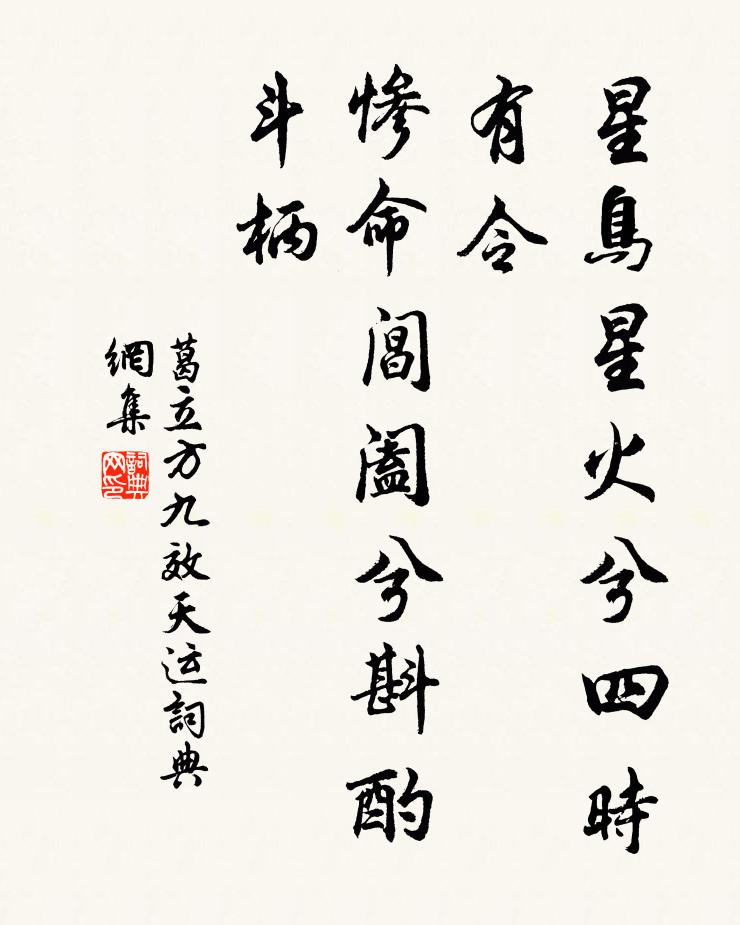 星鳥星火兮四時
有令
慘命閶闔兮斟酌
斗柄
葛立方九效天运詞典
網集
詞典网印